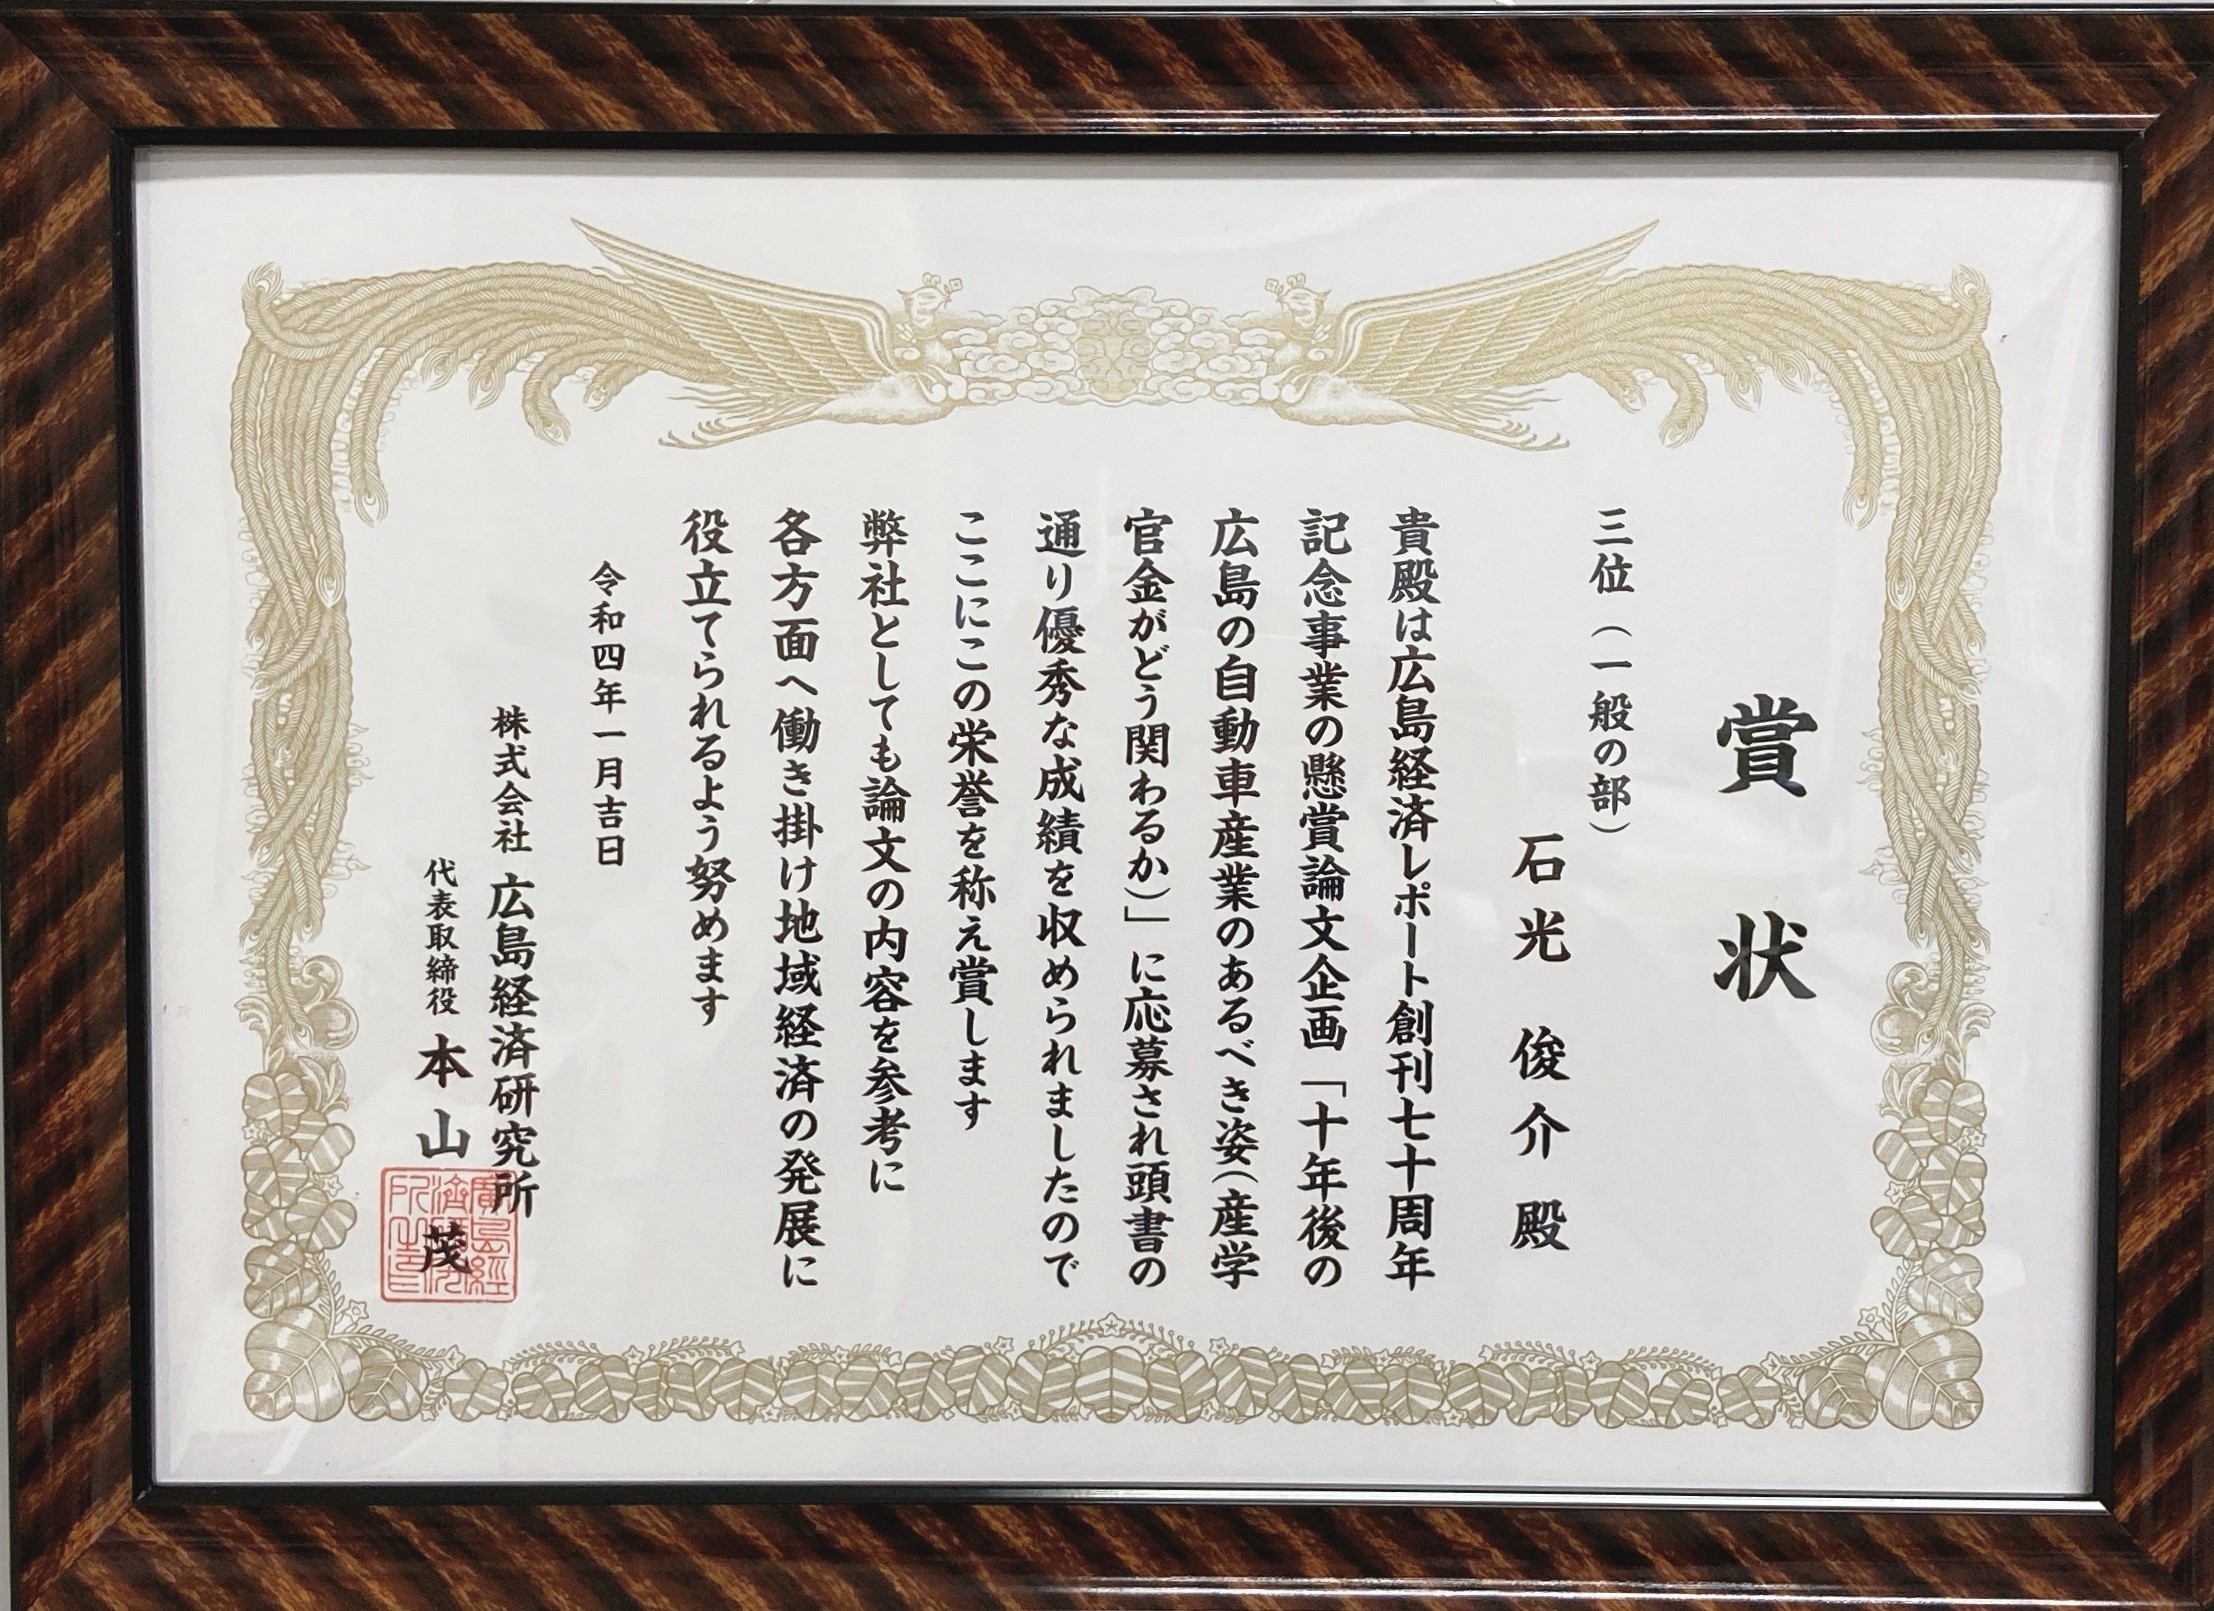 賞状
三位（一般の部）
石光 俊介 殿
貴殿は広島経済レポート創刊七十周年
記念事業の懸賞論文企画「十年後の
広島の自動車産業のあるべき姿（産学
官金がどう関わるか）」に応募され頭書の
通り優秀な成績を収められましたので
ここにこの栄誉を称え賞します
弊社としても論文の内容を参考に
各方面へ働き掛け地域経済の発展に
役立てられるよう努めます
令和四年一月吉日
株式会社 広島経済研究所
代表取締役 本山 茂